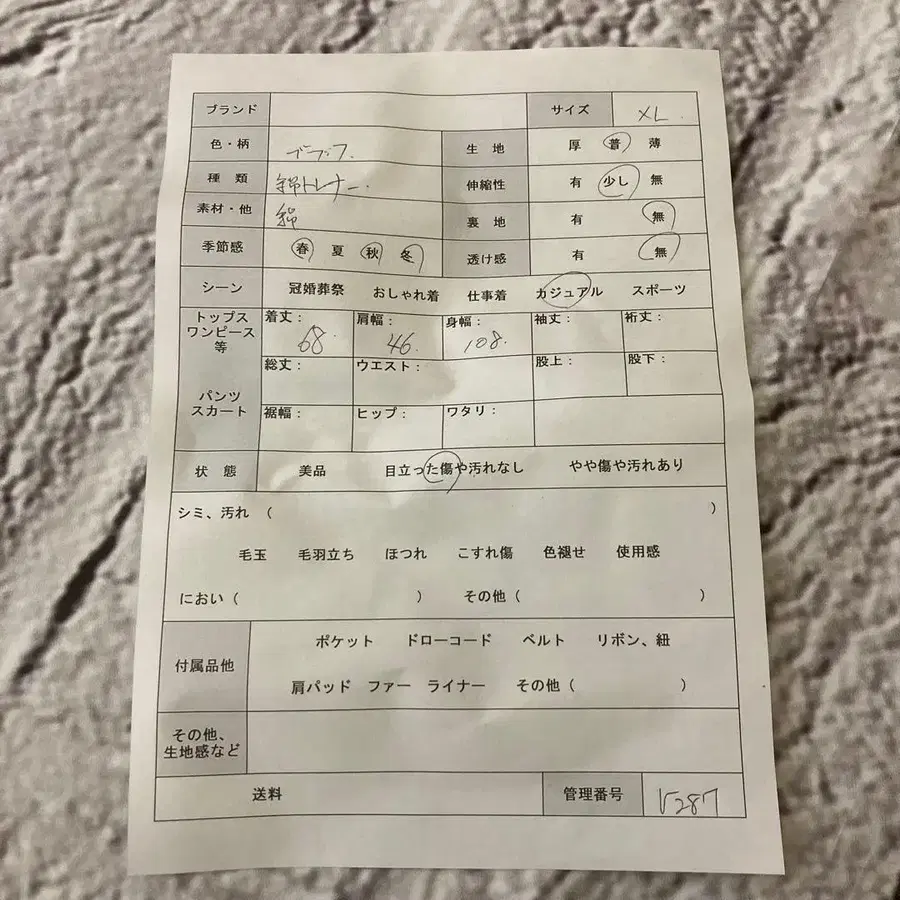 ブランド サイズ XL
色・柄 生 地 厚 普 薄
種 類 綿トレーナー 伸縮性 有 少し 無
素材・他 綿 裏 地 有 無
季節感 春 夏 秋 冬 透け感 有 無
シーン 冠婚葬祭 おしゃれ着 仕事着 カジュアル スポーツ
トップス
ワンピース
等
着丈: 68. 肩幅: 46. 身幅: 108. 袖丈: 裄丈:
総丈: ウエスト: 股上: 股下:
パンツ
スカート
裾幅: ヒップ: ワタリ:
状 態 美品 目立った傷や汚れなし やや傷や汚れあり
シミ、汚れ ( )
毛玉 毛羽立ち ほつれ こすれ傷 色褪せ 使用感
におい ( ) その他 ( )
付属品他
ポケット ドローコード ベルト リボン、紐
肩パッド ファー ライナー その他 ( )
その他、
生地感など
送料 管理番号